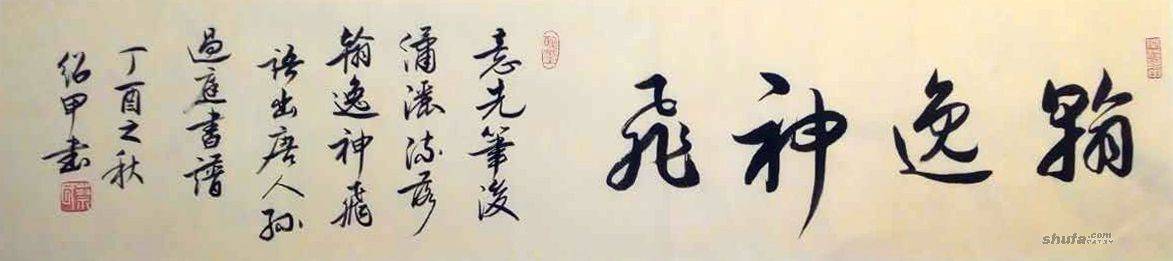 翰逸神飛
意先筆後
潇灑流落
翰逸神飛
語出唐人孙
過庭書譜
丁酉之秋
绍甲書
shufa.com